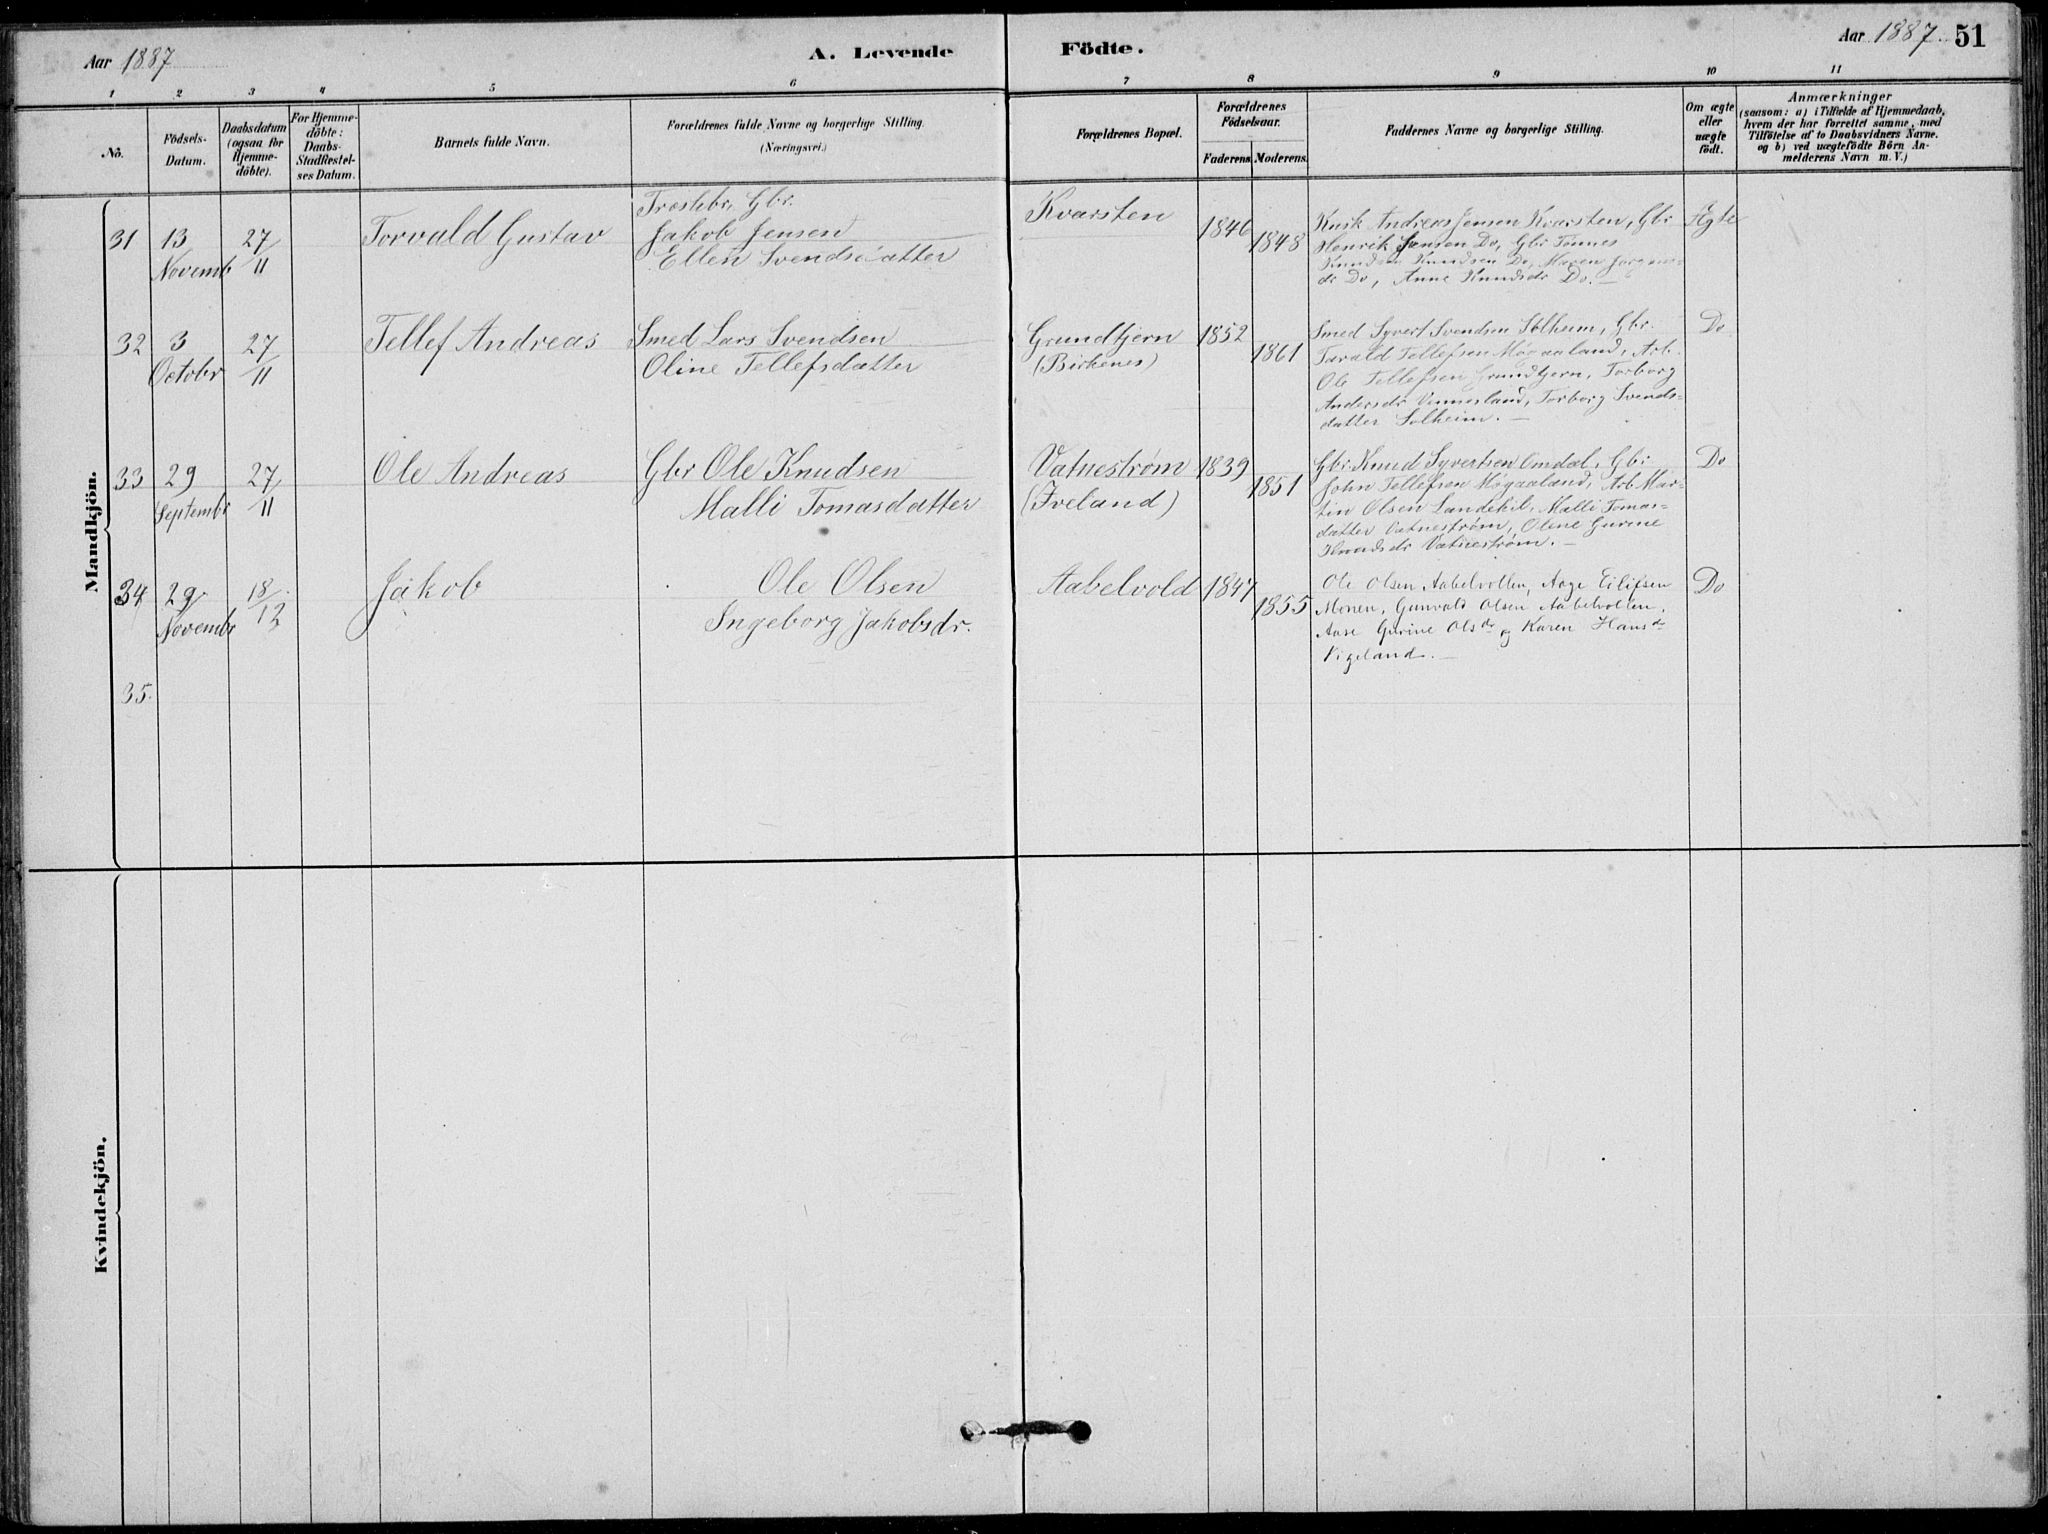 Aar 1887
A. Levende Födte.
Aar 1887. 51
1 2 3 4 5 6 7 8 9 10 11
No.
Födsels-
Datum.
Daabsdatum
(ogsaa for
Hjemme-
döbte).
For Hjemme-
döbte:
Daabs-
Stadfæstel-
ses Datum.
Barnets fulde Navn.
Forældrenes fulde Navne og borgerlige Stilling.
(Næringsvei.)
Forældrenes Bopæl.
Forældrenes
Födselsaar.
Faderens. Moderens.
Faddernes Navne og borgerlige Stilling.
Om ægte
eller
uægte
födt.
Anmærkninger
(saasom: a) i Tilfælde af Hjemmedaab,
hvem der har forrettet samme, med
Tilföielse af to Daabsvidners Navne.
og b) ved uægtefödte Börn An-
melderens Navn m. V.)
Mandkjön.
31 13 Novembr 27/11
Torvald Gustav
Gbr.
Jakob Jensen
Ellen Svendsdatter
Kvarsten
1846 1848
Kusk Andreas Jensen Kvarsten, Gbr
Henrik Jensen Do, Gbr Tønnes
Knudsen Do, Maren
dr Do, Anne Knudsdr Do. —
Ægte
32 3 Octobr 27/11
Tellef Andreas
Smed Lars Svendsen
Oline Tellefsdatter
Grundtjern
(Birkenes)
1852 1861
Smed Syvert Svendsen Solheim, Gbr.
Tarald Tellefsen Møgaaland, Arb.
Ole Tellefsen Grundtjern, Torborg
Andersdr Vennesland, Torborg Svends-
datter Solheim. —
Do
33 29 Septembr 27/11
Ole Andreas
Gbr Ole Knudsen
Malli Tomasdatter
Vatnestrøm
(Iveland)
1839 1851
Gbr Knud Syvertsen Omdal, Gbr
John Tellefsen Møgaaland, Arb Mar-
tin Olsen Landekil, Malli Tomas-
datter Vatnestrøm, Olene Gurine
Knudsdr Vatnestrøm. —
Do
34 29 Novembr 18/12
Jakob
Ole Olsen
Ingeborg Jakobsdr.
Aabelvold
1847 1855
Ole Olsen Aabelvollen, Aage Eilifsen
Monen, Gunvald Olsen Aabelvollen,
Aase Gurine Olsdr og Karen Hansdr
Vigeland. —
Do
35.
Kvindekjön.